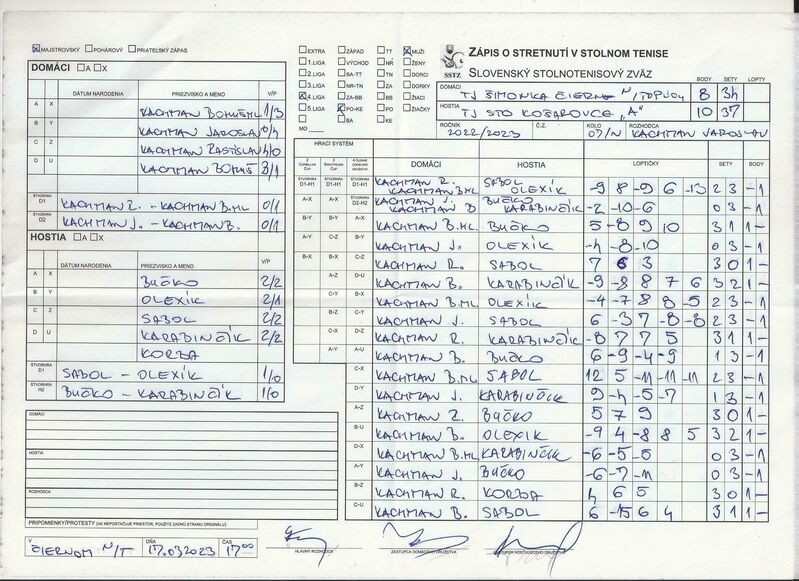 MAJSTROVSKÝ POHÁROVÝ PRIATEĽSKÝ ZÁPAS
DOMÁCI A X
DÁTUM NARODENIA PRIEZVISKO A MENO V/P
A X KACHMAN BOHUŠ ML 1/3
B Y KACHMAN JAROSLAV 0/4
C Z KACHMAN RASTISLAV 4/0
D U KACHMAN BOHUŠ 3/1
ŠTVORHRA D1 KACHMAN R. - KACHMAN B. ML 0/1
ŠTVORHRA D2 KACHMAN J. - KACHMAN B. 0/1
HOSTIA A X
DÁTUM NARODENIA PRIEZVISKO A MENO V/P
A X BUČKO 2/2
B Y OLEXÍK 2/1
C Z SABOL 2/2
D U KARABINČÍK 2/2
KORBA
ŠTVORHRA D1 SABOL - OLEXÍK 1/0
ŠTVORHRA H2 BUČKO - KARABINČÍK 1/0
DOMÁCI
HOSTIA
ROZHODCA
PRIPOMIENKY/PROTESTY (AK NEPOSTAČUJE PRIESTOR, POUŽITE ZADNÚ STRANU ORIGINÁLU)
V ČIERNOM N/T DŇA 17.03.2023 ČAS 17:00
HLAVNÝ ROZHODCA ZÁSTUPCA DOMÁCEHO DRUŽSTVA ZÁSTUPCA HOSŤUJÚCEHO DRUŽSTVA
EXTRA ZÁPAD TT MUŽI
1.LIGA VÝCHOD NR ŽENY
2.LIGA BA-TT TN DORCI
3.LIGA NR-TN ZA DORKY
4.LIGA ZA-BB BB ŽIACI
5.LIGA PO-KE PO ŽIAČKY
BA KE
MO
SSTZ
ZÁPIS O STRETNUTÍ V STOLNOM TENISE
SLOVENSKÝ STOLNOTENISOVÝ ZVÄZ
BODY SETY LOPTY
DOMÁCI TJ ŠIMONKA ČIERNE N/TOPĽOU 8 34
HOSTIA TJ STO KOŠAROVCE "A" 10 37
ROČNÍK 2022/2023 Č.Z. KOLO 07/N ROZHODCA KACHMAN JAROSLAV
HRACÍ SYSTÉM
DOMÁCI HOSTIA LOPTIČKY SETY BODY
D1-H1 D1-H1 D1-H1 KACHMAN R. KACHMAN B. ML SABOL OLEXÍK -9 8 -9 6 -13 2 3 -1
A-X A-X D2-H2 KACHMAN J. KACHMAN B BUČKO KARABINČÍK -2 -10 -6 0 3 -1
B-Y B-Y A-X KACHMAN B. ML BUČKO 5 -8 9 10 3 1 1-
A-Y C-Z B-Y KACHMAN J. OLEXÍK -4 -8 -10 0 3 -1
B-X B-X C-Z KACHMAN R. SABOL 7 6 3 3 0 1-
A-Z D-U KACHMAN B. KARABINČÍK -9 -8 8 7 6 3 2 1-
C-Y B-X KACHMAN B. ML OLEXÍK -4 -7 8 8 -5 2 3 -1
B-Z C-Y KACHMAN J. SABOL 6 -3 7 -8 -8 2 3 -1
C-X D-Z KACHMAN R. KARABINČÍK -8 7 7 5 3 1 1-
A-Y A-U KACHMAN B. BUČKO 6 -9 -4 -9 1 3 -1
C-X KACHMAN B. ML SABOL 12 5 -11 -11 -11 2 3 -1
D-Y KACHMAN J. KARABINČÍK 9 -4 -5 -7 1 3 -1
A-Z KACHMAN R. BUČKO 5 7 9 3 0 1-
B-U KACHMAN B. OLEXÍK -9 4 -8 8 5 3 2 1-
D-X KACHMAN B. ML KARABINČÍK -6 -5 -5 0 3 -1
A-Y KACHMAN J. BUČKO -6 -7 -11 0 3 -1
B-Z KACHMAN R. KORBA 4 6 5 3 0 1-
C-U KACHMAN B. SABOL 6 -15 6 4 3 1 1-